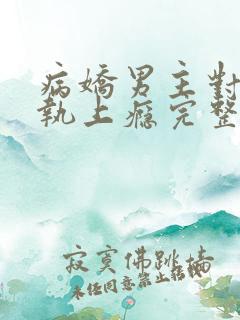 病嬌男主對
執上癮完整
寂寞佛跳墻
未经同意禁止转载